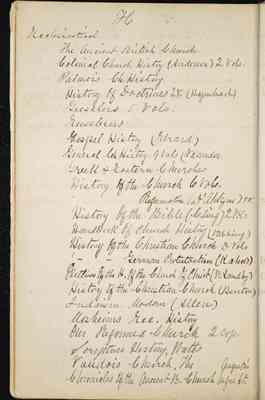 H
Ecclesiastical
The Ancient British Church
Colonial Church Histy (Anderson) 2 Vols.
Palmers Ch History
History of Doctrines 2V. (Hagenbach)
Gieselers 5 Vols.
Gospel History (Ebrard)
General Ch History 9 Vols (Neander
Greek & Eastern Churches
History of the Church 6 Vols.
" Reformation (d'Aubigne)
History of the Bible
Handbook of Church History
History of the Christian Church 2 Vols
" - " German Protestantism (Kahnis)
History of the Christian Church (Burton)
Judaism Modern (Allen)
Mosheims Ecc. History
Our Reformed Church 2 cop.
Scripture History, Watts
Vaudois Church, The
Chronicles of the Ancient Br. Church